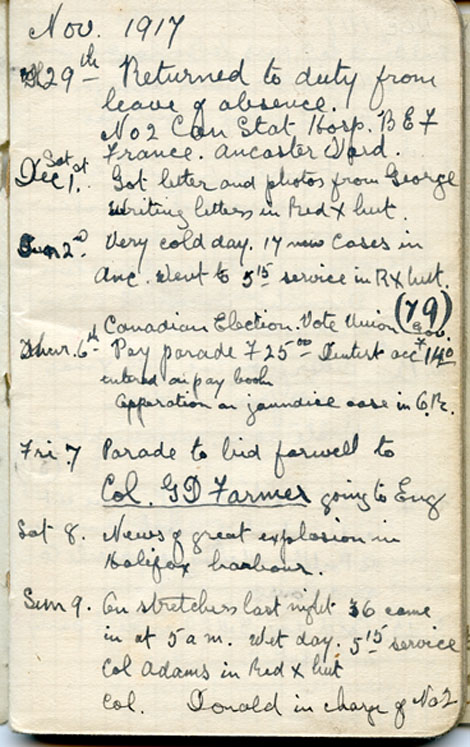 Nov. 1917
Th 29th Returned to duty from
leave of absence.
No 2 Can Stat Hosp. B E F
France. Ancaster Ward.
Sat Dec 1st. Got letter and photos from George
Writing letters in Red X hut.
Sun 2nd. Very cold day. 17 new cases in
Anc. Went to 5 15 service in RX hut.
Canadian Election. Vote Union Gov. (79)
Thur. 6th Pay parade F 25 00 Dentist acc * 14 0
entered on pay book
Opperation on jaundice case in
Fri 7 Parade to bid farwell to
Col. G D Farmer going to Eng
Sat 8. News of great explosion in
Halifax harbour.
Sun 9. On stretchers last night 36 came
in at 5 am. Wet day. 5 15 service
Col Adams in Red X hut
Col. Donald in charge of No 2